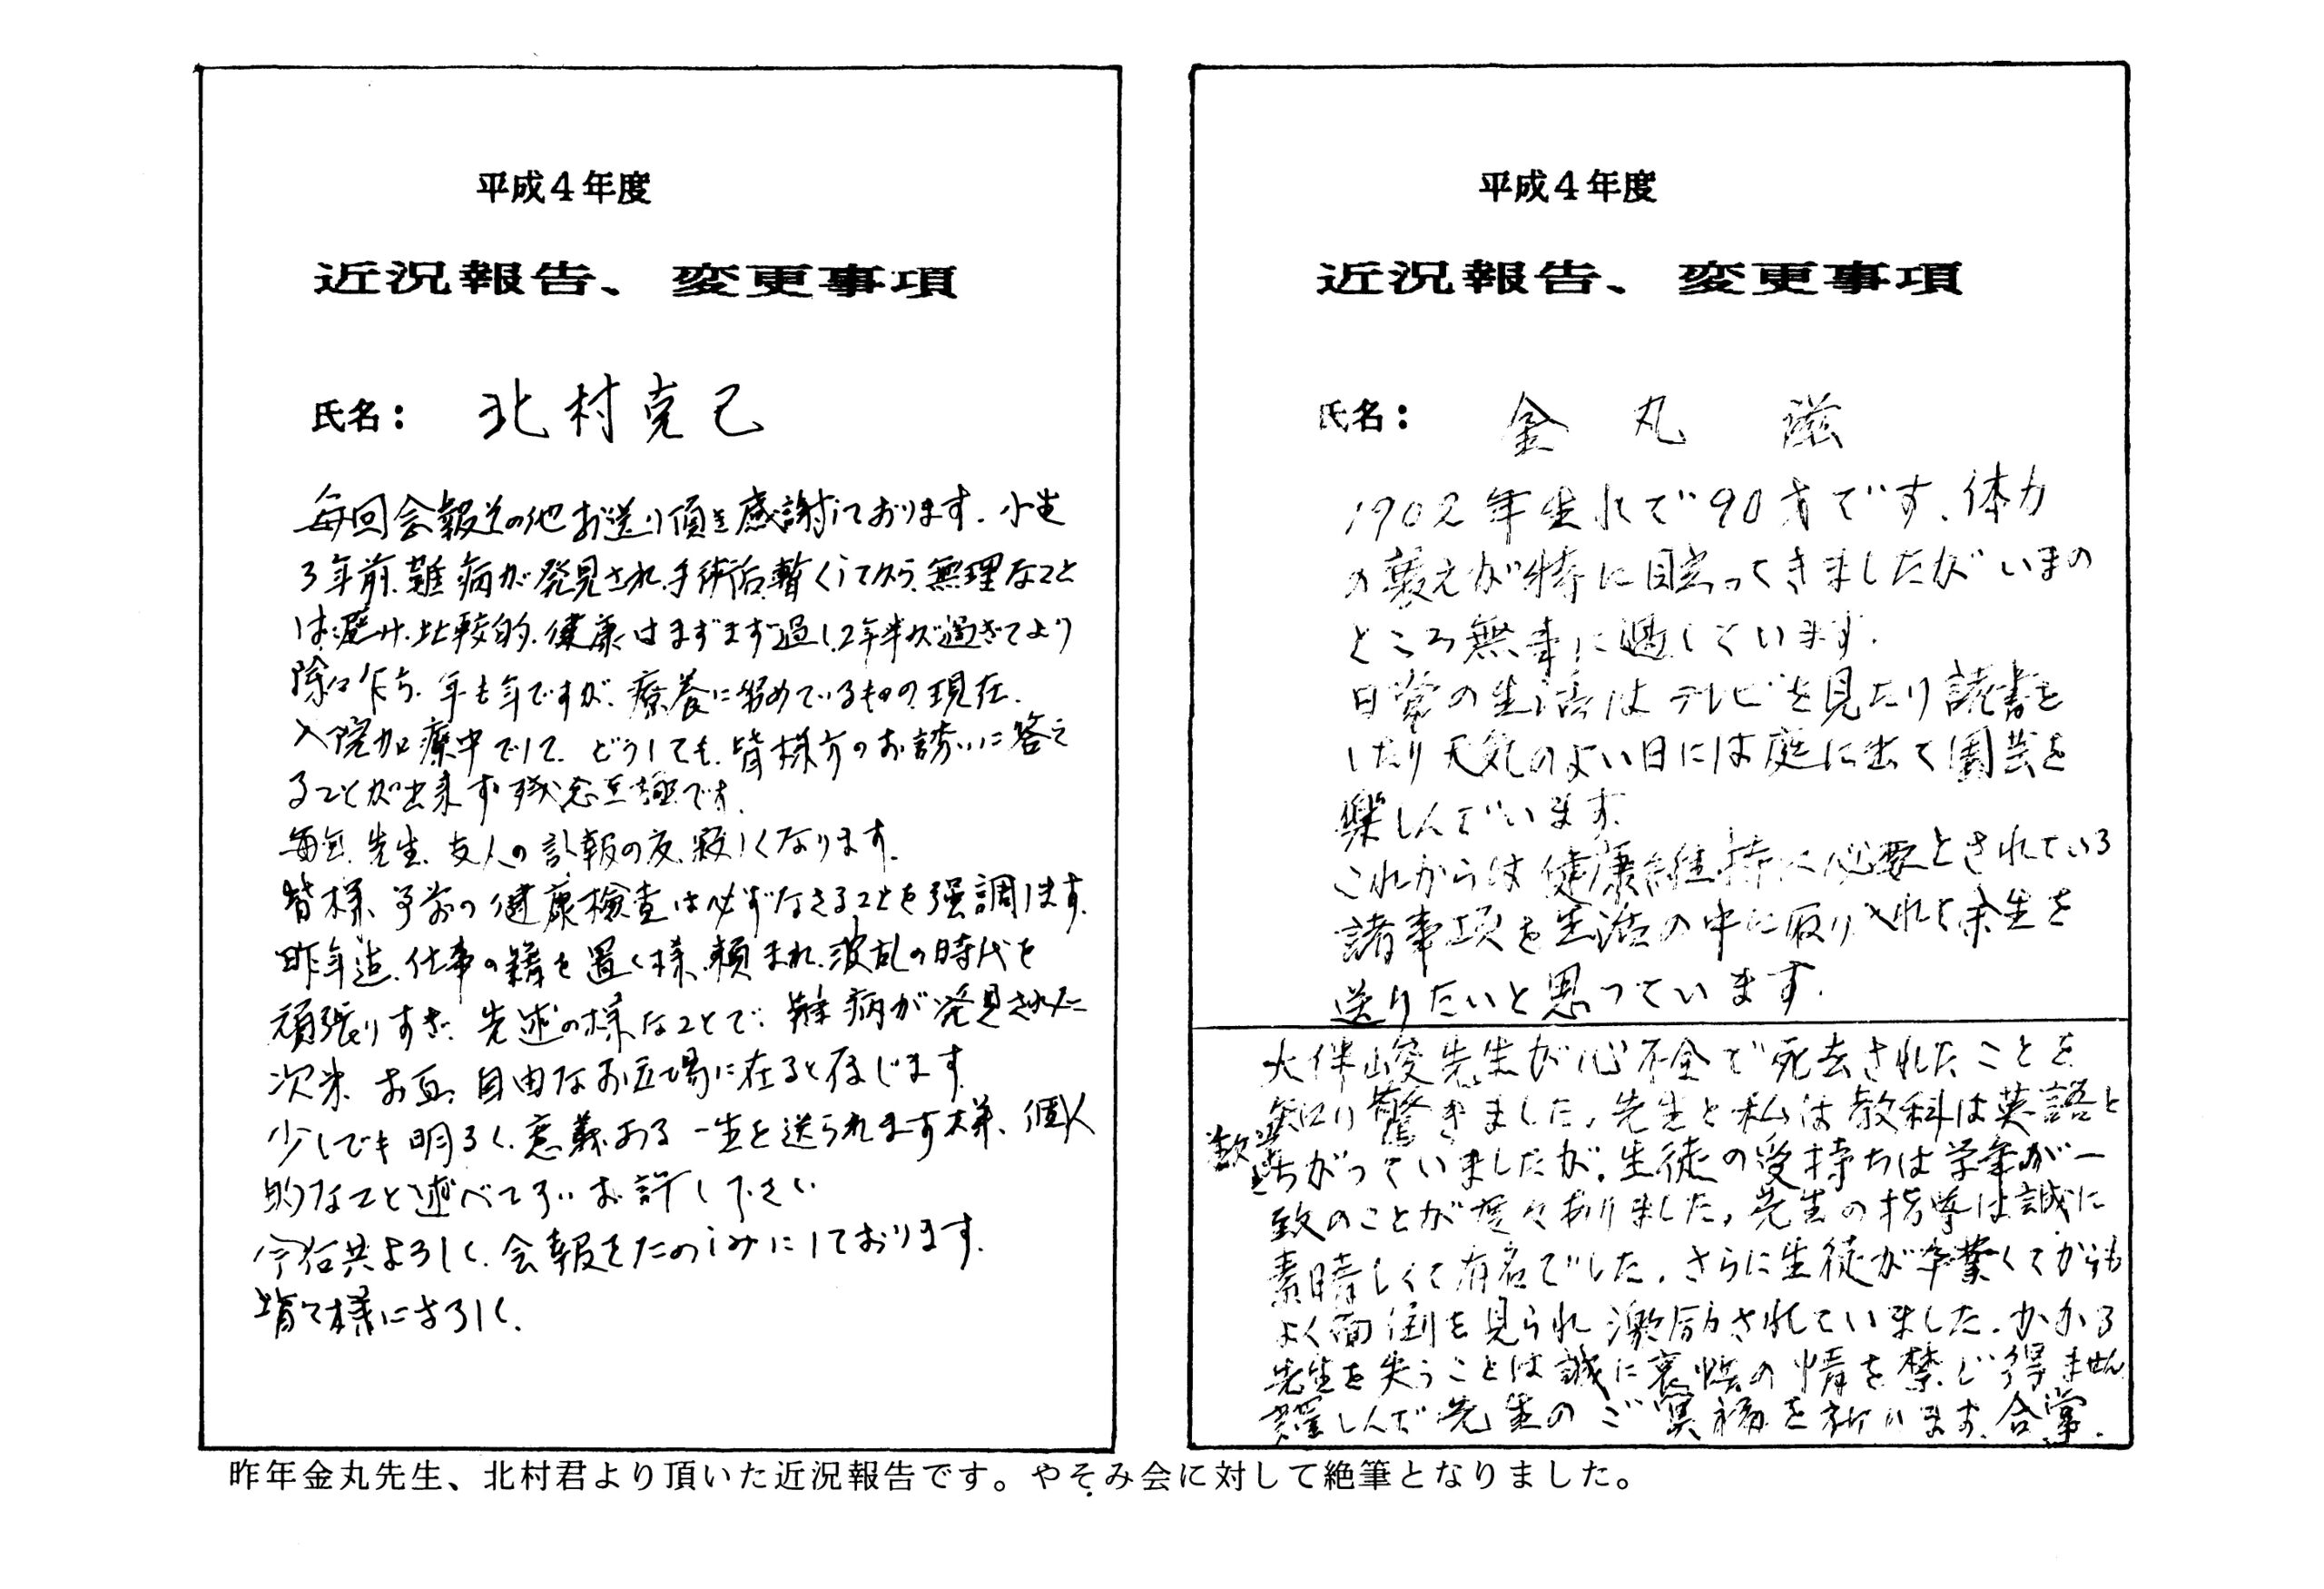 平成4年度
近況報告、変更事項
氏名: 北村克己
毎回会報その他お送り頂き感謝しております。小生
3年前、難病が発見され、手術后、暫くしてから、無理なこと
は避け、比較的、健康はまずまず過し、2年半が過ぎてより
除々乍ら、年も年ですが、療養に努めているもの、現在、
入院加療中でして、どうしても、皆様方のお誘いに答え
ることが出来ず残念至極です。
毎年、先生、友人の訃報の度、寂しくなります。
皆様、予前の健康検査は必ずなさることを強調します。
昨年迄、仕事の籍を置く様、頼まれ、波乱の時代を
頑張りすぎ、先述の様なことで、難病が発見された
次第、お互、自由なお立場に在ると存じます。
少しでも明るく、意義ある一生を送られます様、個人
的なこと述べてすいお許し下さい
今后共よろしく、会報をたのしみにしております。
皆々様によろしく。
平成4年度
近況報告、変更事項
氏名: 金丸 滋
1902年生れで90才です。体力
の衰えが特に目立ってきましたがいまの
ところ無事に過しています。
日常の生活はテレビを見たり読書を
したり天気のよい日には庭に出て園芸を
楽しんでいます。
これからは健康維持に必要とされている
諸事項を生活の中に取り入れて余生を
送りたいと思っています。
大伴峻先生が心不全で死去されたことを
知り驚きました。先生と私は教科は英語と
数学ちがっていましたが、生徒の受持ちは学年が一
致のことが度々ありました。先生の指導は誠に
素晴しくて有名でした。さらに生徒が卒業してからも
よく面倒を見られ激励されていました。かかる
先生を失うことは誠に哀惜の情を禁じ得ません
謹しんで先生のご冥福を祈ります。合掌。
昨年金丸先生、北村君より頂いた近況報告です。やそみ会に対して絶筆となりました。